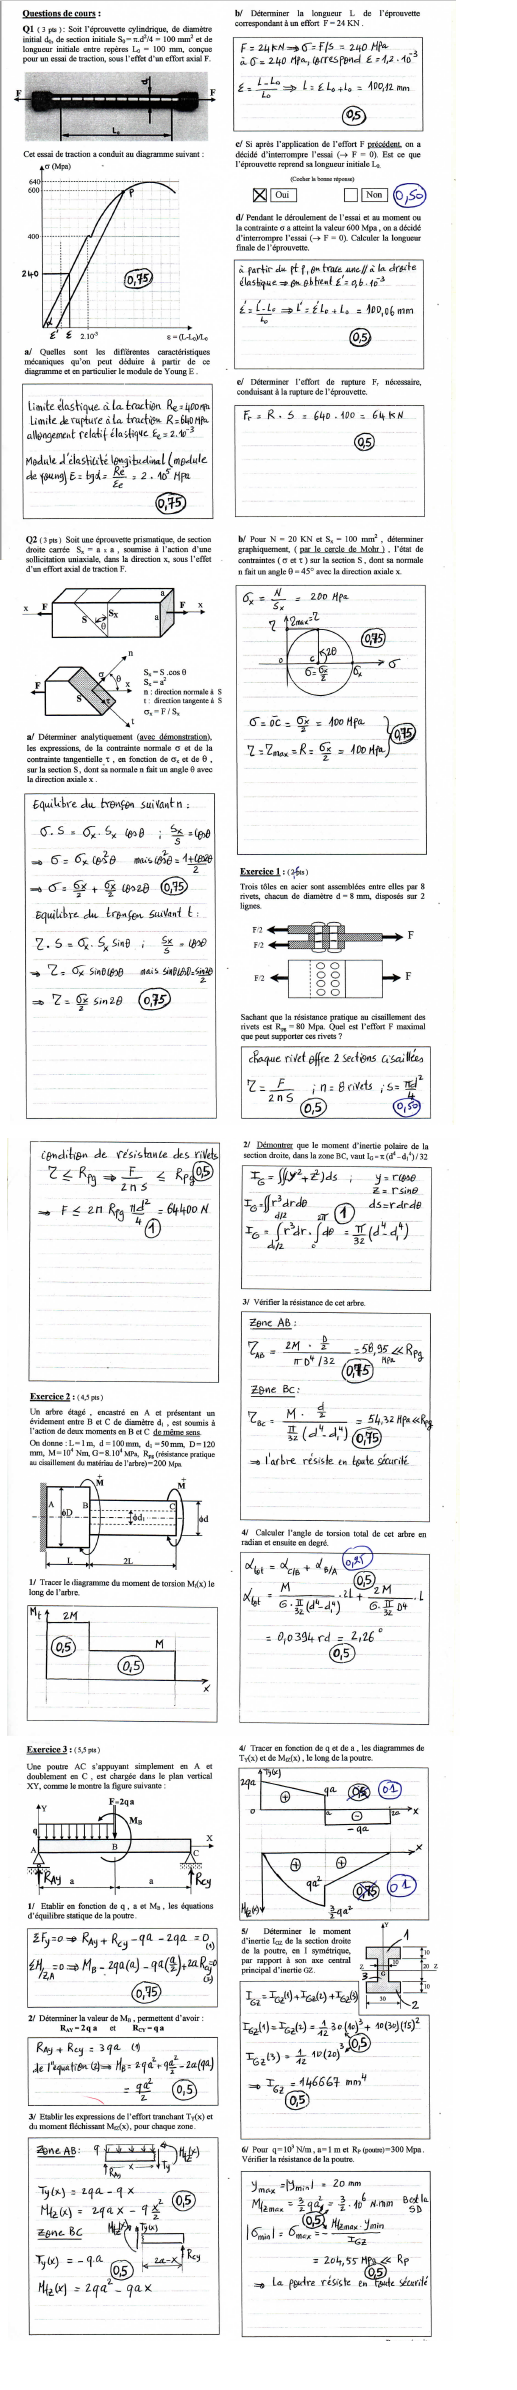 Questions de cours :
Q1 ( 3 pts ) : Soit l'éprouvette cylindrique, de diamètre
initial d₀, de section initiale S₀ = π.d²/4 = 100 mm² et de
longueur initiale entre repères L₀ = 100 mm, conçue
pour un essai de traction, sous l'effet d'un effort axial F.
F
F
L₀
Cet essai de traction a conduit au diagramme suivant :
σ (Mpa)
640
600
P
400
240
0,75
ε' ε 2.10⁻³ ε = (L-L₀)/L₀
a/ Quelles sont les différentes caractéristiques
mécaniques qu'on peut déduire à partir de ce
diagramme et en particulier le module de Young E .
Limite élastique à la traction Re = 400 Mpa
Limite de rupture à la traction R = 640 MPa
allongement relatif élastique εe = 2.10⁻³
Module d'élasticité longitudinal (module
de young) E = tgα = Re/εe = 2 . 10⁵ MPa
0,75
b/ Déterminer la longueur L de l'éprouvette
correspondant à un effort F = 24 KN .
F = 24 KN ⇒ σ = F/S = 240 MPa
à σ = 240 MPa, correspond ε = 1,2 . 10⁻³
ε = (L-L₀)/L₀ ⇒ L = εL₀ + L₀ = 100,12 mm
0,5
c/ Si après l'application de l'effort F précédent, on a
décidé d'interrompre l'essai (→ F = 0). Est ce que
l'éprouvette reprend sa longueur initiale L₀.
(Cocher la bonne réponse)
Oui Non 0,50
d/ Pendant le déroulement de l'essai et au moment ou
la contrainte σ a atteint la valeur 600 Mpa , on a décidé
d'interrompre l'essai (→ F = 0). Calculer la longueur
finale de l'éprouvette.
à partir du pt P, on trace une // à la droite
élastique ⇒ on obtient ε' = 0,6 . 10⁻³
ε' = (L'-L₀)/L₀ ⇒ L' = ε'L₀ + L₀ = 100,06 mm
0,5
e/ Déterminer l'effort de rupture Fr nécessaire,
conduisant à la rupture de l'éprouvette.
Fr = R . S = 640 . 100 = 64 KN
0,5
Q2 ( 3 pts ) Soit une éprouvette prismatique, de section
droite carrée Sx = a x a , soumise à l'action d'une
sollicitation uniaxiale, dans la direction x, sous l'effet
d'un effort axial de traction F.
x F S Sx θ a a F x
n
σ
θ
x
S τ
t
Sx = S .cos θ
Sx = a²
n : direction normale à S
t : direction tangente à S
σx = F / Sx
a/ Déterminer analytiquement (avec démonstration),
les expressions, de la contrainte normale σ et de la
contrainte tangentielle τ , en fonction de σx et de θ ,
sur la section S, dont sa normale n fait un angle θ avec
la direction axiale x .
Equilibre du tronçon suivant n :
σ . S = σx . Sx cosθ ; Sx/S = cosθ
⇒ σ = σx cos²θ mais cos²θ = (1+cos2θ)/2
⇒ σ = σx/2 + σx/2 cos2θ 0,75
Equilibre du tronçon suivant t :
τ . S = σx . Sx sinθ ; Sx/S = cosθ
→ τ = σx sinθcosθ mais sinθcosθ = sin2θ/2
⇒ τ = σx/2 sin2θ 0,75
b/ Pour N = 20 KN et Sx = 100 mm² , déterminer
graphiquement, ( par le cercle de Mohr ) , l'état de
contraintes ( σ et τ ) sur la section S , dont sa normale
n fait un angle θ = 45° avec la direction axiale x.
σx = N/Sx = 200 MPa
τ
τmax = τ
0,75
2θ
0 C σx σ
σ = σx/2
σ = OC = σx/2 = 100 MPa
τ = τmax = R = σx/2 = 100 MPa
0,75
Exercice 1 :
Trois tôles en acier sont assemblées entre elles par 8
rivets, chacun de diamètre d = 8 mm, disposés sur 2
lignes.
F/2
F/2
F
F/2
F
Sachant que la résistance pratique au cisaillement des
rivets est Rpg = 80 Mpa. Quel est l'effort F maximal
que peut supporter ces rivets ?
chaque rivet offre 2 sections cisaillées
τ = F/(2 n S) ; n = 8 rivets ; s = πd²/4
0,5 0,50
condition de résistance des rivets
τ ≤ Rpg ⇒ F/(2 n S) ≤ Rpg 0,5
⇒ F ≤ 2n Rpg πd²/4 = 64400 N
1
Exercice 2 : ( 4,5 pts )
Un arbre étagé , encastré en A et présentant un
évidement entre B et C de diamètre d₁ , est soumis à
l'action de deux moments en B et C de même sens.
On donne : L = 1 m, d = 100 mm, d₁ = 50 mm, D = 120
mm, M = 10⁴ Nm, G = 8.10⁴ MPa, Rpg (résistance pratique
au cisaillement du matériau de l'arbre) = 200 Mpa.
A ϕD B M ϕd₁ C M ϕd
L 2L
1/ Tracer le diagramme du moment de torsion Mt(x) le
long de l'arbre.
Mt
2M
0,5
M
0,5
x
2/ Démontrer que le moment d'inertie polaire de la
section droite, dans la zone BC, vaut I₀ = π (d⁴ - d₁⁴) / 32
IG = ∬(y²+z²)ds ; y = rcosθ
z = rsinθ
IG = ∬r³drdθ 1 ds = rdrdθ
IG = ∫r³dr . ∫dθ = π/32 (d⁴-d₁⁴)
3/ Vérifier la résistance de cet arbre.
Zone AB :
τAB = (2M . D/2)/(π D⁴/32) = 58,95 MPa ≪ Rpg
0,75
Zone BC :
τBC = (M . d/2)/(π/32 (d⁴-d₁⁴)) = 54,32 MPa ≪ Rpg
0,75
⇒ l'arbre résiste en toute sécurité
4/ Calculer l'angle de torsion total de cet arbre en
radian et ensuite en degré.
αtot = αC/B + αB/A 0,25
0,5
αtot = M/(G . π/32 (d⁴-d₁⁴)) . 2L + 2M/(G . π/32 D⁴) . L
= 0,0394 rd = 2,26°
0,5
Exercice 3 : ( 5,5 pts )
Une poutre AC s'appuyant simplement en A et
doublement en C , est chargée dans le plan vertical
XY, comme le montre la figure suivante :
Y F=2qa
q MB
A B C X
RAy a a RCy
1/ Etablir en fonction de q , a et MB , les équations
d'équilibre statique de la poutre.
ΣFy = 0 ⇒ RAy + RCy - qa - 2qa = 0 (1)
ΣM/Z,A = 0 ⇒ MB - 2qa(a) - qa(a/2) + 2a RCy = 0 (2)
0,75
2/ Déterminer la valeur de MB , permettent d'avoir :
RAY = 2 q a et RCY = q a
RAy + RCy = 3 qa (1)
de l'equation (2) ⇒ MB = 2qa² + qa²/2 - 2a(qa)
= qa²/2 0,5
3/ Etablir les expressions de l'effort tranchant Ty(x) et
du moment fléchissant Mfz(x), pour chaque zone.
Zone AB : q Mfz(x)
RAy x Ty
Ty(x) = 2qa - qx
Mfz(x) = 2qa x - q x²/2 0,5
Zone BC Mfz(x) Ty(x)
2a-x RCy
Ty(x) = - q.a 0,5
Mfz(x) = 2qa² - qax
4/ Tracer en fonction de q et de a , les diagrammes de
Ty(x) et de Mfz(x) , le long de la poutre.
Ty(x)
2qa
qa
0,5 01
0 a 2a x
-qa
x
qa²
0,75 01
Mfz(x) 3/2 qa²
5/ Déterminer le moment
d'inertie IGZ de la section droite
de la poutre, en I symétrique,
par rapport à son axe central
principal d'inertie GZ.
Y 1
10
Z G 10 20 Z
3
10
30 2
IGZ = IGZ(1) + IGZ(2) + IGZ(3)
IGZ(1) = IGZ(2) = 1/12 30(10)³ + 10(30)(15)²
0,5
IGZ(3) = 1/12 10(20)³
⇒ IGZ = 146667 mm⁴
0,5
6/ Pour q = 10³ N/m , a = 1 m et Rp (poutre) = 300 Mpa .
Vérifier la résistance de la poutre.
ymax = |ymin| = 20 mm
Mfzmax = 3/2 qa² = 3/2 . 10⁶ N.mm B est la
SD
0,5
|σmin| = σmax = - Mfzmax . ymin / IGZ
= 204,55 MPa ≪ Rp
0,5
⇒ La poutre résiste en toute sécurité